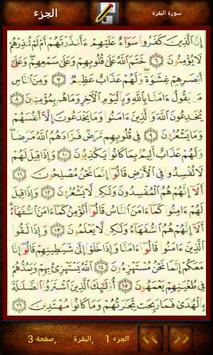 الجزء
سورة البقرة
إِنَّ الَّذِينَ كَفَرُوا سَوَاءٌ عَلَيْهِمْ ءَأَنذَرْتَهُمْ أَمْ لَمْ تُنذِرْهُمْ
لَا يُؤْمِنُونَ ٦ خَتَمَ اللَّهُ عَلَىٰ قُلُوبِهِمْ وَعَلَىٰ سَمْعِهِمْ وَعَلَىٰ
أَبْصَٰرِهِمْ غِشَٰوَةٌ وَلَهُمْ عَذَابٌ عَظِيمٌ ٧ وَمِنَ النَّاسِ
مَن يَقُولُ ءَامَنَّا بِاللَّهِ وَبِالْيَوْمِ الْءَاخِرِ وَمَا هُم بِمُؤْمِنِينَ ٨
يُخَٰدِعُونَ اللَّهَ وَالَّذِينَ ءَامَنُوا وَمَا يَخْدَعُونَ إِلَّا أَنفُسَهُمْ
وَمَا يَشْعُرُونَ ٩ فِي قُلُوبِهِم مَّرَضٌ فَزَادَهُمُ اللَّهُ مَرَضًا
وَلَهُمْ عَذَابٌ أَلِيمٌ بِمَا كَانُوا يَكْذِبُونَ ١٠ وَإِذَا قِيلَ لَهُمْ
لَا تُفْسِدُوا فِي الْأَرْضِ قَالُوا إِنَّمَا نَحْنُ مُصْلِحُونَ ١١
أَلَا إِنَّهُمْ هُمُ الْمُفْسِدُونَ وَلَٰكِن لَّا يَشْعُرُونَ ١٢ وَإِذَا قِيلَ
لَهُمْ ءَامِنُوا كَمَا ءَامَنَ النَّاسُ قَالُوا أَنُؤْمِنُ كَمَا ءَامَنَ السُّفَهَاءُ
أَلَا إِنَّهُمْ هُمُ السُّفَهَاءُ وَلَٰكِن لَّا يَعْلَمُونَ ١٣ وَإِذَا لَقُوا
الَّذِينَ ءَامَنُوا قَالُوا ءَامَنَّا وَإِذَا خَلَوْا إِلَىٰ شَيَٰطِينِهِمْ قَالُوا إِنَّا
مَعَكُمْ إِنَّمَا نَحْنُ مُسْتَهْزِءُونَ ١٤ اللَّهُ يَسْتَهْزِئُ بِهِمْ وَيَمُدُّهُمْ
فِي طُغْيَٰنِهِمْ يَعْمَهُونَ ١٥ أُولَٰئِكَ الَّذِينَ اشْتَرَوُا الضَّلَٰلَةَ
بِالْهُدَىٰ فَمَا رَبِحَت تِّجَٰرَتُهُمْ وَمَا كَانُوا مُهْتَدِينَ ١٦
الجزء 1 ,البقرة ,صفحة 3